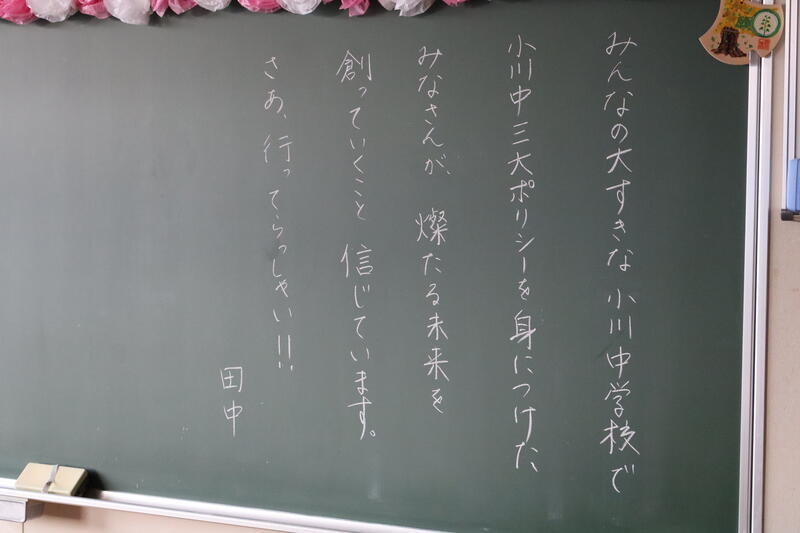 みんなの大すきな小川中学校で
小川中三大ポリシーを身につけた、
みなさんが、燦たる未来を
創っていくこと信じています。
さあ、行ってらっしゃい!!
田中